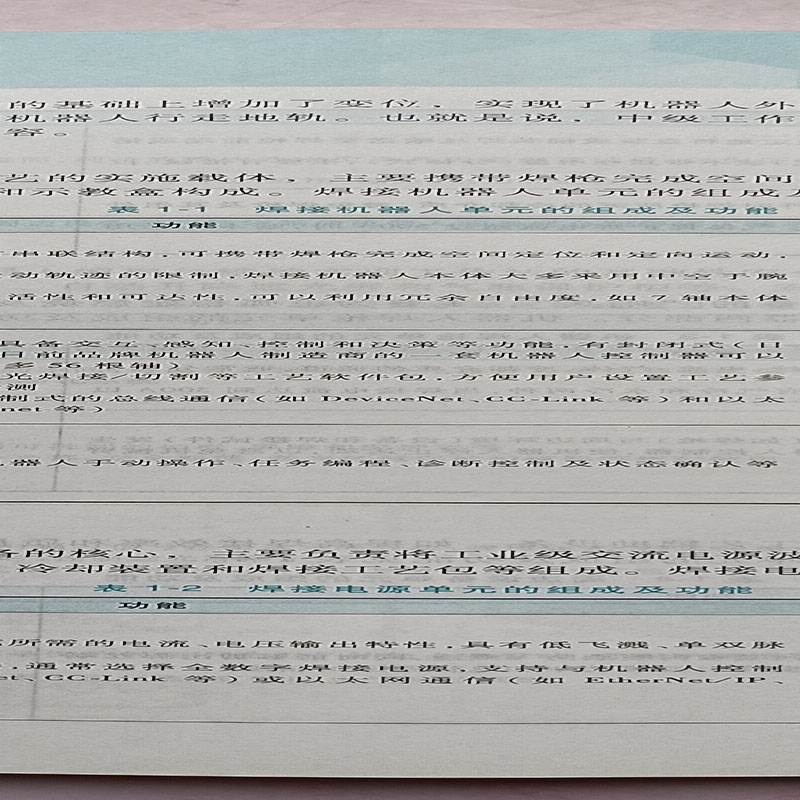 的基础上增加了变位，实现了机器人外
机器人行走地轨。也就是说，中级工作
容。
艺的实施载体，主要携带焊枪完成空间
和示教盒构成。焊接机器人单元的组成及
表 1-1 焊接机器人单元的组成及功能
功能
串联结构，可携带焊枪完成空间定位和定向运动，
动轨迹的限制，焊接机器人本体大多采用中空手腕
活性和可达性，可以利用冗余自由度，如 7 轴本体
具备交互、感知、控制和决策等功能，有封闭式（日
目前品牌机器人制造商的一套机器人控制器可以
多 56 根轴）
光焊接/切割等工艺软件包，方便用户设置工艺参
测
制式的总线通信（如 DeviceNet、CC-Link 等）和以太
net 等）
器人手动操作、任务编程、诊断控制及状态确认等
备的核心，主要负责将工业级交流电源波
冷却装置和焊接工艺包等组成。焊接电
表 1-2 焊接电源单元的组成及功能
功能
所需的电流、电压输出特性，具有低飞溅、单双脉
，通常选择全数字焊接电源，支持与机器人控制
et、CC-Link 等）或以太网通信（如 EtherNet/IP、